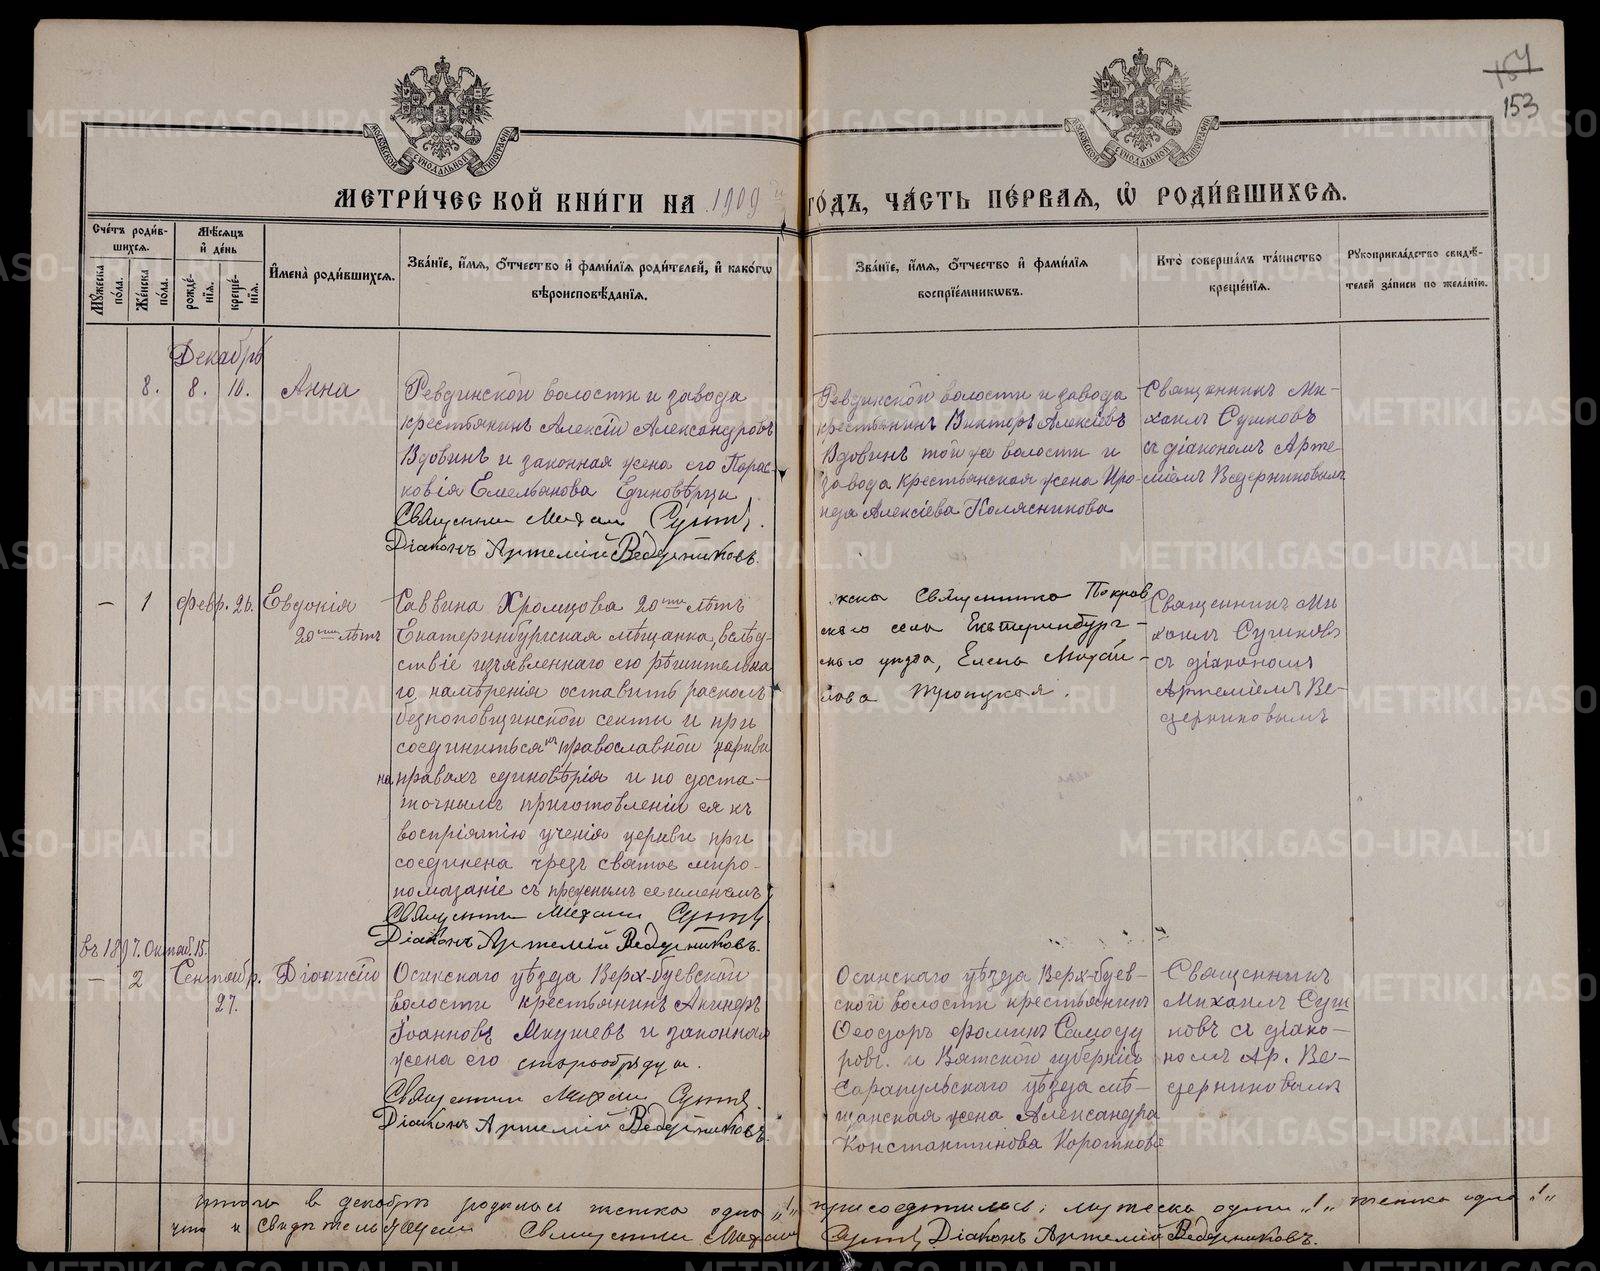 154
153
МОСКОВСКОЙ СѴНОДАЛЬНОЙ ТИПОГРАФІИ
МОСКОВСКОЙ СѴНОДАЛЬНОЙ ТИПОГРАФІИ
МЕТРИ́ЧЕСКОЙ КНИ́ГИ НА 1909 й ГО́ДЪ, ЧА́СТЬ ПЕ́РВАѦ, Ѽ РОДИ́ВШИХСѦ.
Сче́тъ роди́в-
шихсѧ.
Мѹ́жеска по́ла.
Же́нска по́ла.
Мѣ́сѧцъ
и҆ де́нь
рожде́-
нїѧ.
креще́-
нїѧ.
И҆мена̀ роди́вшихсѧ.
Зва́нїе, и҆́мѧ, ѻ҆́тчество и҆ фами́лїѧ роди́телей, и҆ како́гѡ
вѣроисповѣ́данїѧ.
Зва́нїе, и҆́мѧ, ѻ҆́тчество и҆ фами́лїѧ
воспрїе́мникѡвъ.
Кто̀ соверша́лъ та́инство
креще́нїѧ.
Рꙋкоприкла́дство свидѣ́-
телей за́писи по жела́нїю.
Декабрь
8. 8. 10. Анна
Ревдинской волости и завода
крестьянинъ Алексій Александровъ
Вдовинъ и законная жена его Парас-
ковія Емельянова Единовѣрцы
Священникъ Михаилъ Сушковъ.
Діаконъ Артемій Ведерниковъ.
Ревдинской волости и завода
крестьянинъ Викторъ Алексіевъ
Вдовинъ той же волости и
завода крестьянская жена Иро-
ида Алексіева Колясникова
Священникъ Ми-
хаилъ Сушковъ
съ діакономъ Арте-
міемъ Ведерниковымъ
— 1 Февр. 26. Евдокія
20ти лѣтъ
Саввина Хромцова 20ти лѣтъ
Екатеринбургская мѣщанка, вслѣд-
ствіе изъявленнаго ею рѣшительна-
го намѣренія оставить расколъ
безпоповщинской секты и при
соединиться къ православной церкви
на правахъ единовѣрія и по доста-
точномъ приготовленіи ея къ
воспріятію ученія церкви при
соединена чрезъ святое миро-
помазаніе съ прежнимъ ея именемъ
Священникъ Михаилъ Сушковъ
Діаконъ Артемій Ведерниковъ.
жена священника Покров
скаго села Екатеринбург-
скаго уѣзда, Елена Михай-
лова Троицкая.
Священникъ Ми
хаилъ Сушковъ
съ діакономъ
Артеміемъ Ве-
дерниковымъ
въ 1897. Октяб. 15.
— 2 Сентябр. 27. Діонисій
Осинскаго уѣзда Верх-буевской
волости крестьянинъ
Іоанновъ Якушевъ и законная
жена его старообрядцы.
Священникъ Михаилъ Сушковъ.
Діаконъ Артемій Ведерниковъ.
Осинскаго уѣзда Верх-буев-
ской волости крестьянинъ
Ѳеодоръ Фоминъ Самоду
ровъ. и Вятской губерніи
Сарапульскаго уѣзда мѣ-
щанская жена Александра
Константинова Короткова
Священникъ
Михаилъ Суш
ковъ съ діако-
номъ Ар. Ве-
дерниковымъ
Итого в декабрѣ родилась женска одна „1„ присоединилась: мужеска одинъ „1„ женска одна „1„
что и свидѣтельствуемъ Священникъ Михаилъ Сушковъ Діаконъ Артемій Ведерниковъ.
METRIKI.GASO-URAL.RU